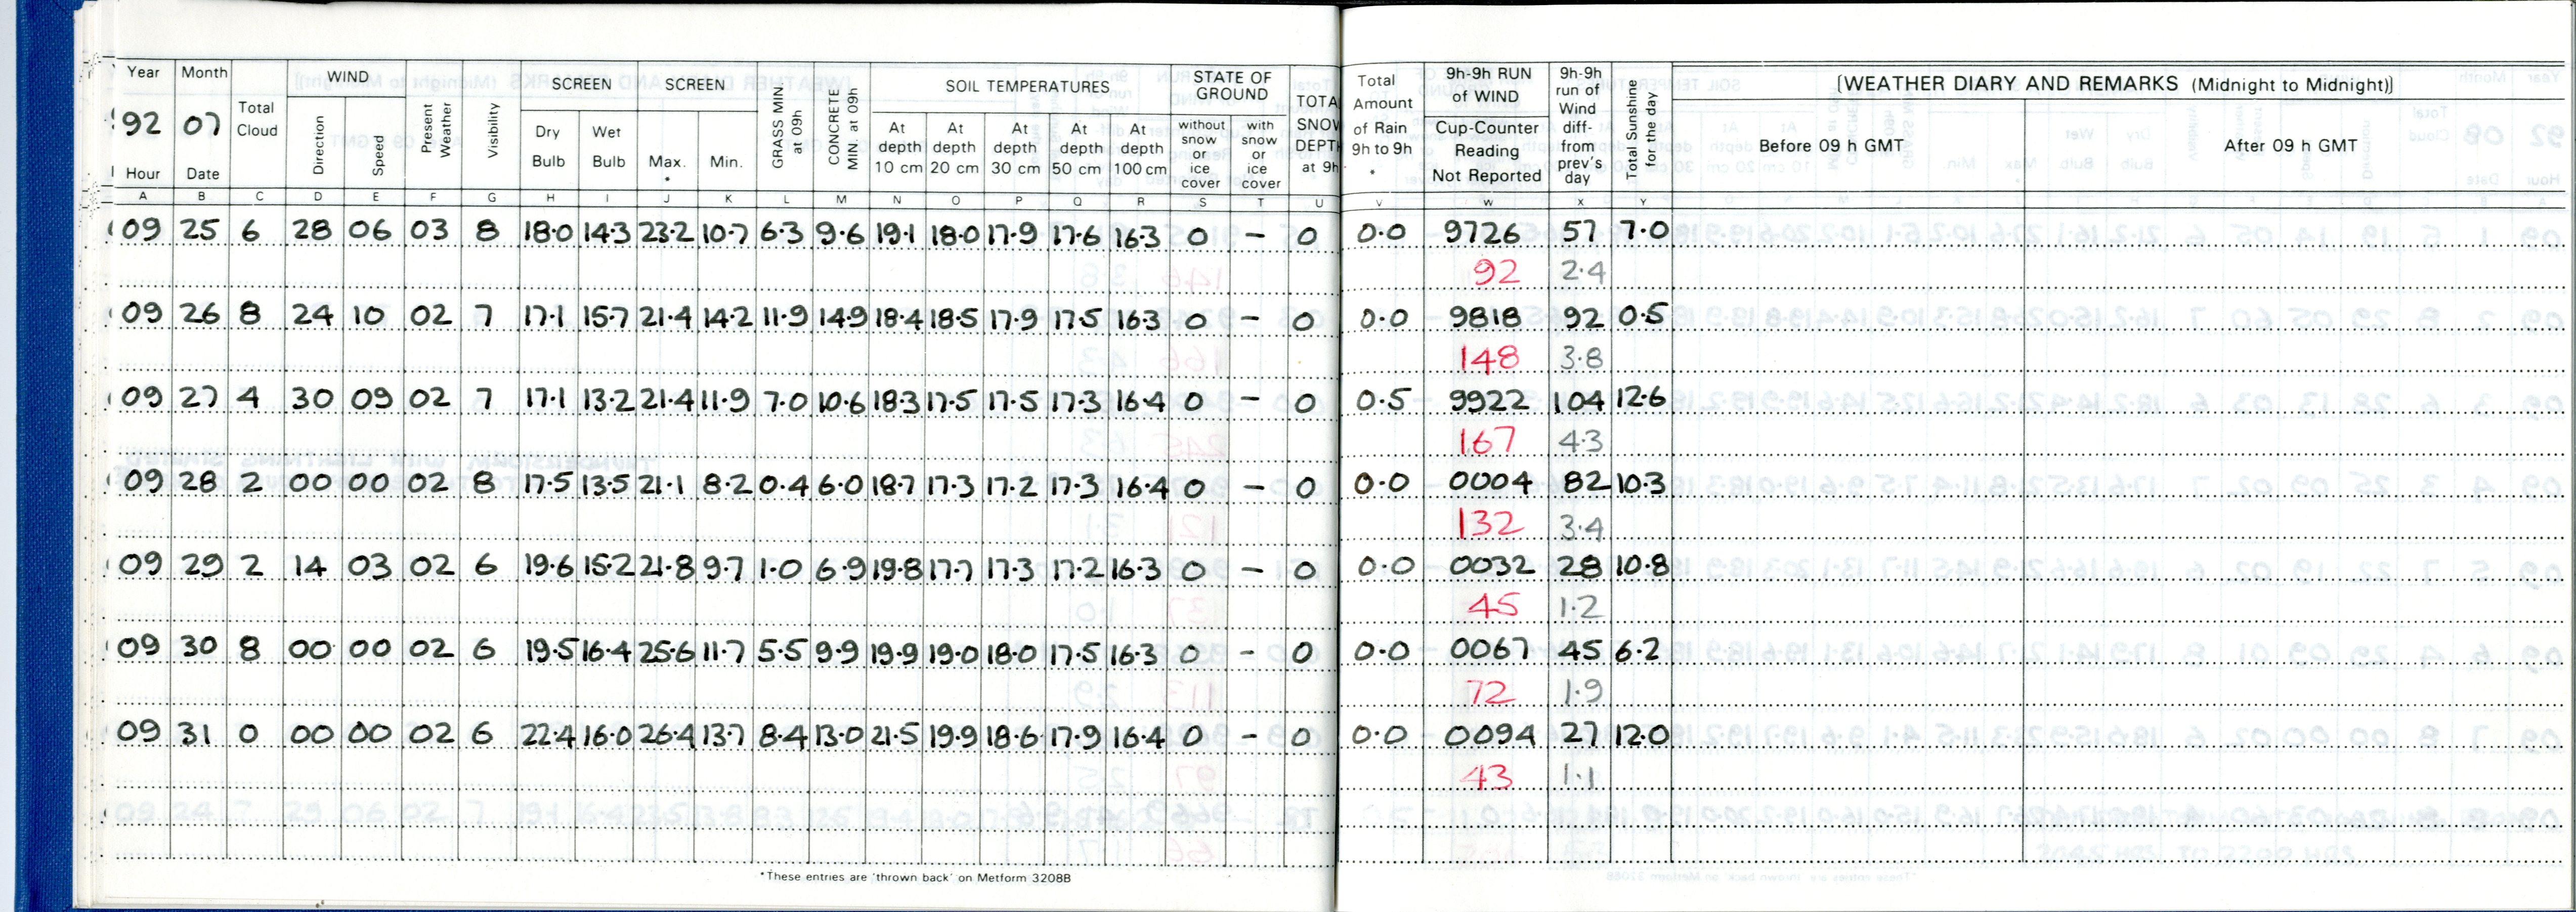 Year Month WIND SCREEN SCREEN SOIL TEMPERATURES STATE OF GROUND Total Amount of Rain 9h to 9h * 9h-9h RUN of WIND 9h-9h run of Wind diff- from prev's day Total Sunshine for the day [WEATHER DIARY AND REMARKS (Midnight to Midnight)]
92 07 Total Cloud Direction Speed Present Weather Visibility Dry Bulb Wet Bulb Max. * Min. GRASS MIN. at 09h CONCRETE MIN. at 09h At depth 10 cm At depth 20 cm At depth 30 cm At depth 50 cm At depth 100 cm without snow or ice cover with snow or ice cover TOTA SNOW DEPTH at 9h Cup-Counter Reading Not Reported Before 09 h GMT After 09 h GMT
Hour Date
A B C D E F G H I J K L M N O P Q R S T U V W X Y
09 25 6 28 06 03 8 18.0 14.3 23.2 10.7 6.3 9.6 19.1 18.0 17.9 17.6 16.3 0 – 0 0.0 9726 57 7.0
92 2.4
09 26 8 24 10 02 7 17.1 15.7 21.4 14.2 11.9 14.9 18.4 18.5 17.9 17.5 16.3 0 – 0 0.0 9818 92 0.5
148 3.8
09 27 4 30 09 02 7 17.1 13.2 21.4 11.9 7.0 10.6 18.3 17.5 17.5 17.3 16.4 0 – 0 0.5 9922 104 12.6
167 4.3
09 28 2 00 00 02 8 17.5 13.5 21.1 8.2 0.4 6.0 18.7 17.3 17.2 17.3 16.4 0 – 0 0.0 0004 82 10.3
132 3.4
09 29 2 14 03 02 6 19.6 15.2 21.8 9.7 1.0 6.9 19.8 17.7 17.3 17.2 16.3 0 – 0 0.0 0032 28 10.8
45 1.2
09 30 8 00 00 02 6 19.5 16.4 25.6 11.7 5.5 9.9 19.9 19.0 18.0 17.5 16.3 0 – 0 0.0 0067 45 6.2
72 1.9
09 31 0 00 00 02 6 22.4 16.0 26.4 13.7 8.4 13.0 21.5 19.9 18.6 17.9 16.4 0 – 0 0.0 0094 27 12.0
43 1.1
*These entries are 'thrown back' on Metform 3208B